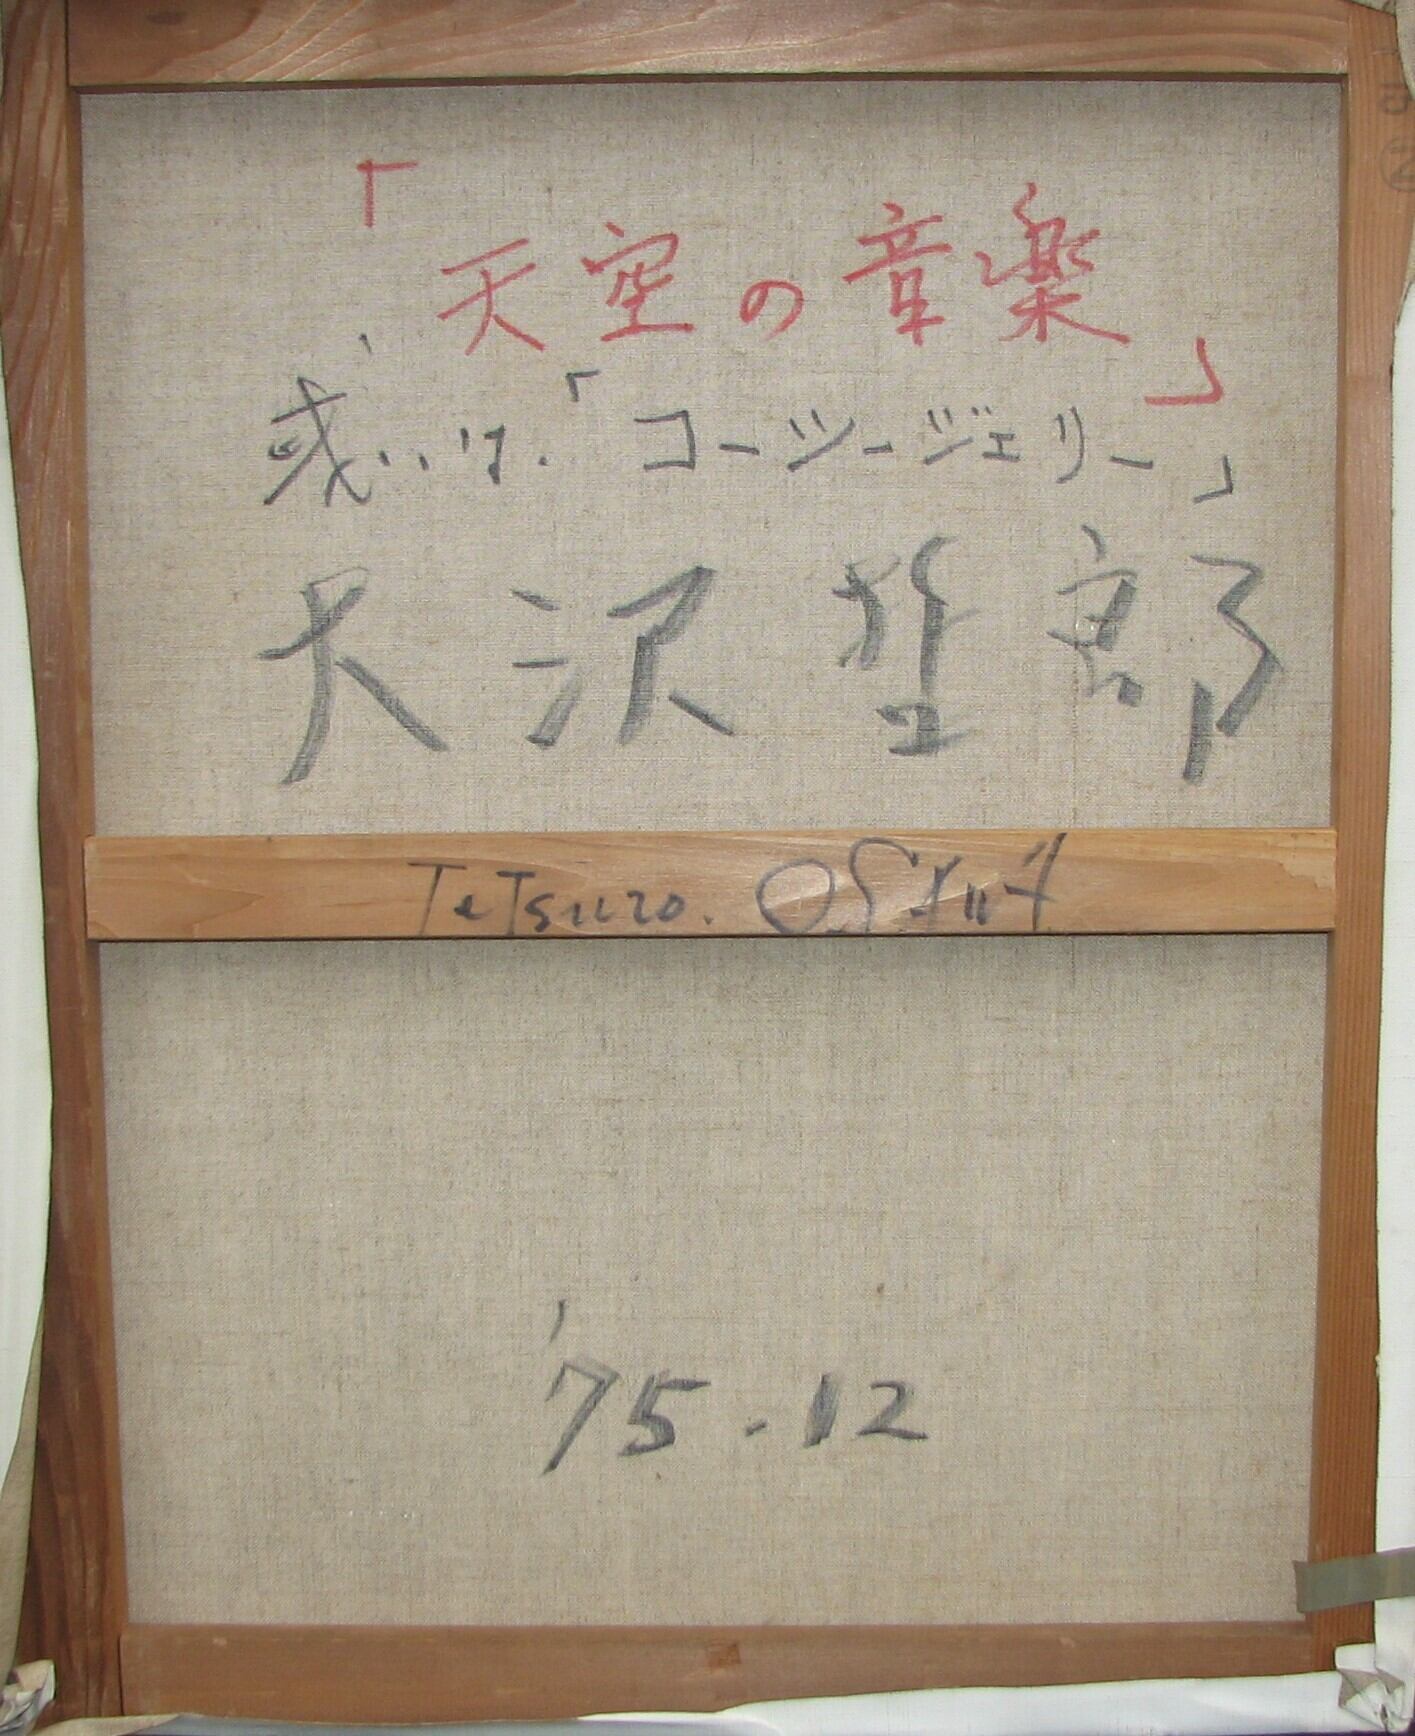 「天空の音楽」
或いは.「コーツージェリー」
大沢哲郎
Tetsuro.
'75.12